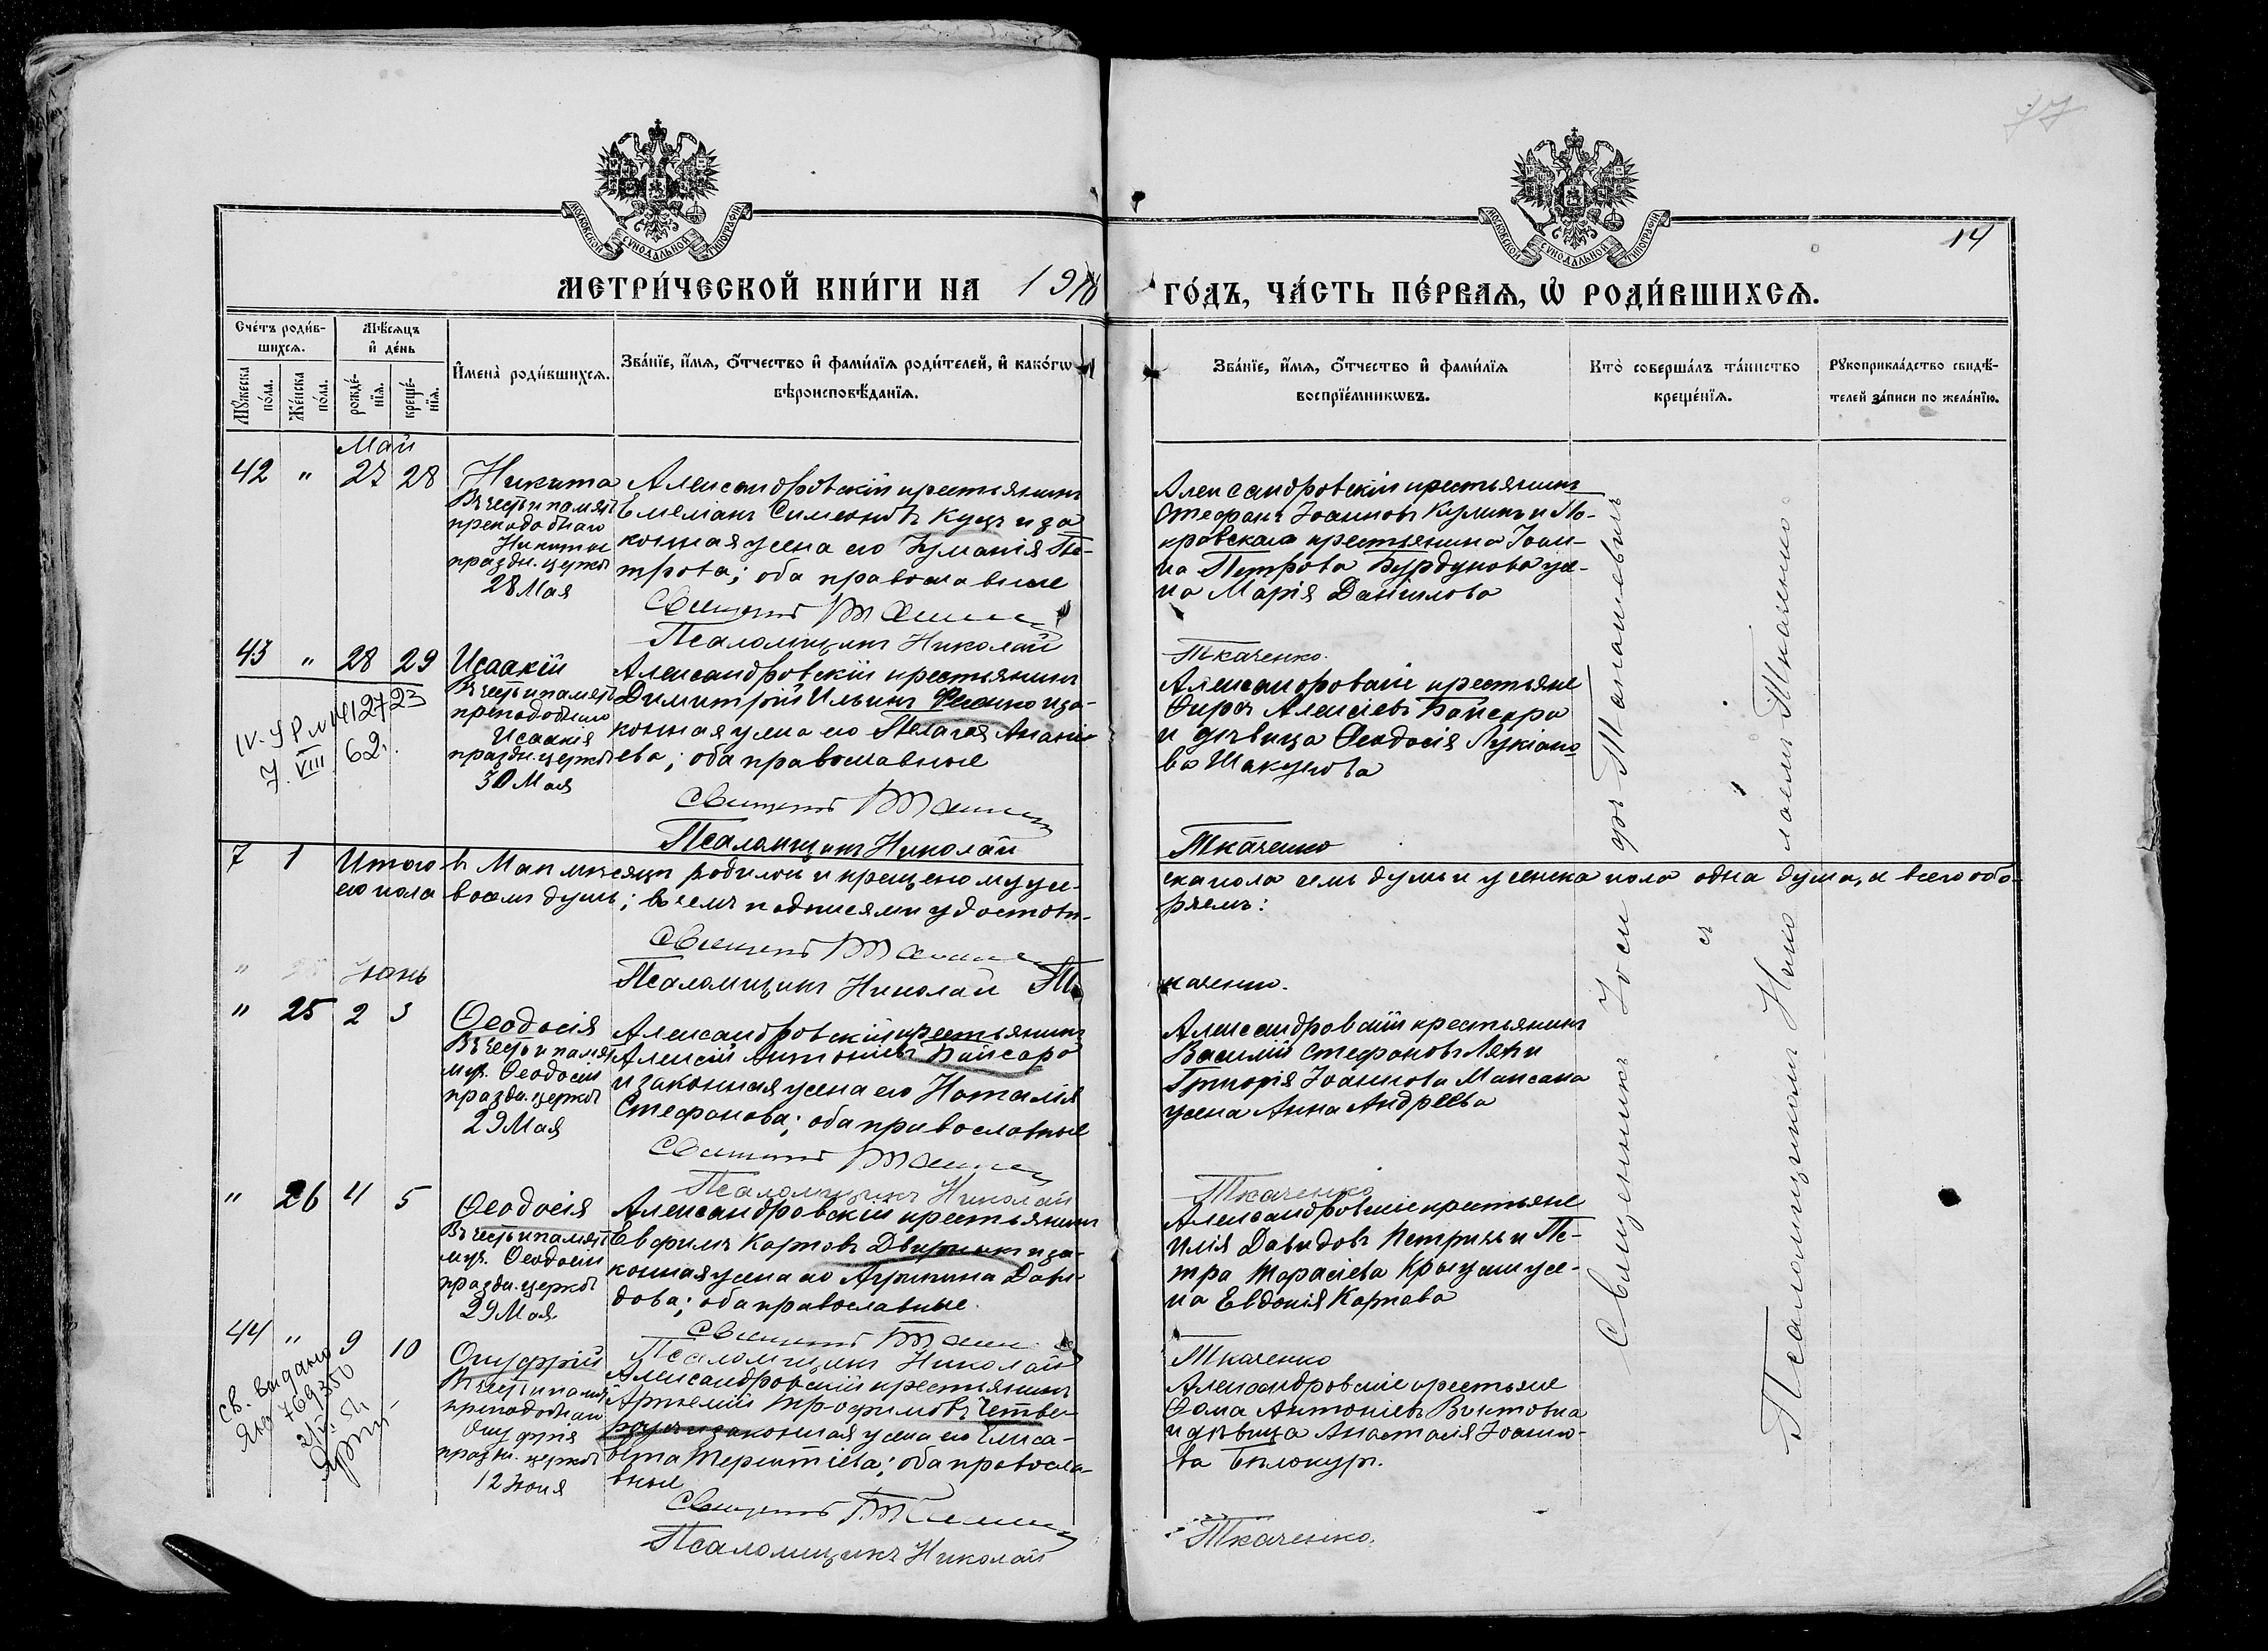 77
14
МОСКОВСКОЙ СѴНОДАЛЬНОЙ ТИПОГРАФІИ
МОСКОВСКОЙ СѴНОДАЛЬНОЙ ТИПОГРАФІИ
МЕТРИ́ЧЕСКОЙ КНИ́ГИ НА 1910
ГО́ДЪ, ЧА́СТЬ ПЕ́РВАѦ, Ѡ҆ РОДИ́ВШИХСѦ.
Сче́тъ роди́в-
шихсѧ.
Мꙋ́жеска
по́ла.
Же́нска
по́ла.
Мѣ́сѧцъ
и҆ де́нь
рожде́-
нїѧ.
креще́-
нїѧ.
И҆мена̀ роди́вшихсѧ.
Зва́нїе, и҆́мѧ, ѻ҆́тчество и҆ фами́лїѧ роди́телей, и҆ како́гѡ
вѣроисповѣ́данїѧ.
Зва́нїе, и҆́мѧ, ѻ҆́тчество и҆ фами́лїѧ
воспрїе́мникѡвъ.
Кто̀ соверша́лъ та́инство
креще́нїѧ.
Рꙋкоприкла́дство свидѣ́-
телей за́писи по жела́нїю.
Май
42 " 27 28
Никита
Въ честь и память
преподобнаго
Никиты
праздн. церков
28 Мая
Александровскій крестьянинъ
Симеоновъ Куцъ и за
конная жена его Пе-
трова; оба православные
Священникъ
Псаломщикъ Николай
Александровскій крестьянинъ
Стефанъ Іоанновъ Куликъ и По-
кровскаго крестьянина Іоан-
на Петрова Бурдукова же-
на Марія Даніилова
Ткаченко.
43 " 28 29
Исаакій
Въ честь и память
преподобнаго
Исаакія
праздн. церков
30 Мая
Александровскій крестьянинъ
Димитрій Ильинъ и за-
конная жена его Пелагея Анані
ева; оба православные
Священникъ
Псаломщикъ Николай
Александровскіе крестьяне
Алексіевъ Байсара
и дѣвица Ѳеодосія Лукіано
ва
Ткаченко
IV. УР № 412723
7. VIII 62.
7 1 Итого въ Маѣ мѣсяцѣ родилось и крещено муже-
ска пола семь душъ и женска пола одна душа, а всего обо-
его пола восемь душъ; въ чемъ подписями удостовѣ-
ряемъ:
Священникъ
Псаломщикъ Николай Т
каченко.
Іюнь
" 25 2 3
Ѳеодосія
Въ честь и память
муч. Ѳеодосіи
праздн. церков
29 Мая
Александровскій крестьянинъ
Алексій Антоніевъ Байсара
и законная жена его Наталія
Стефанова; оба православные
Священникъ
Псаломщикъ Николай
Александровскій крестьянинъ
Василій Стефановъ и
Григорія Іоаннова
жена Анна Андреева
Ткаченко
" 26 4 5
Ѳеодосія
Въ честь и память
муч. Ѳеодосіи
праздн. церков
29 Мая
Александровскій крестьянинъ
Евфимъ Карповъ и за-
конная жена его Агрипина Дави-
дова; оба православные.
Священникъ
Псаломщикъ Николай
Александровскіе крестьяне
Илія Давидовъ и Пе-
тра Тарасіева же-
на Евдокія Карпова
Ткаченко
44 " 9 10
Онуфрій
Въ честь и память
преподобнаго
Онуфрія
праздн. церков
12 Іюня
Александровскій крестьянинъ
Артемій Трофимовъ Четве-
и законная жена его Елиса-
вета Терентіева; оба правосла-
вные
Священникъ
Псаломщикъ Николай
Александровскіе крестьяне
Ѳома Антоніевъ
и дѣвица Анастасія Іоанно-
ва Бѣлокуръ.
Ткаченко.
Св. выдано
769350
Священникъ
съ
Псаломщикомъ Николаемъ Ткаченко